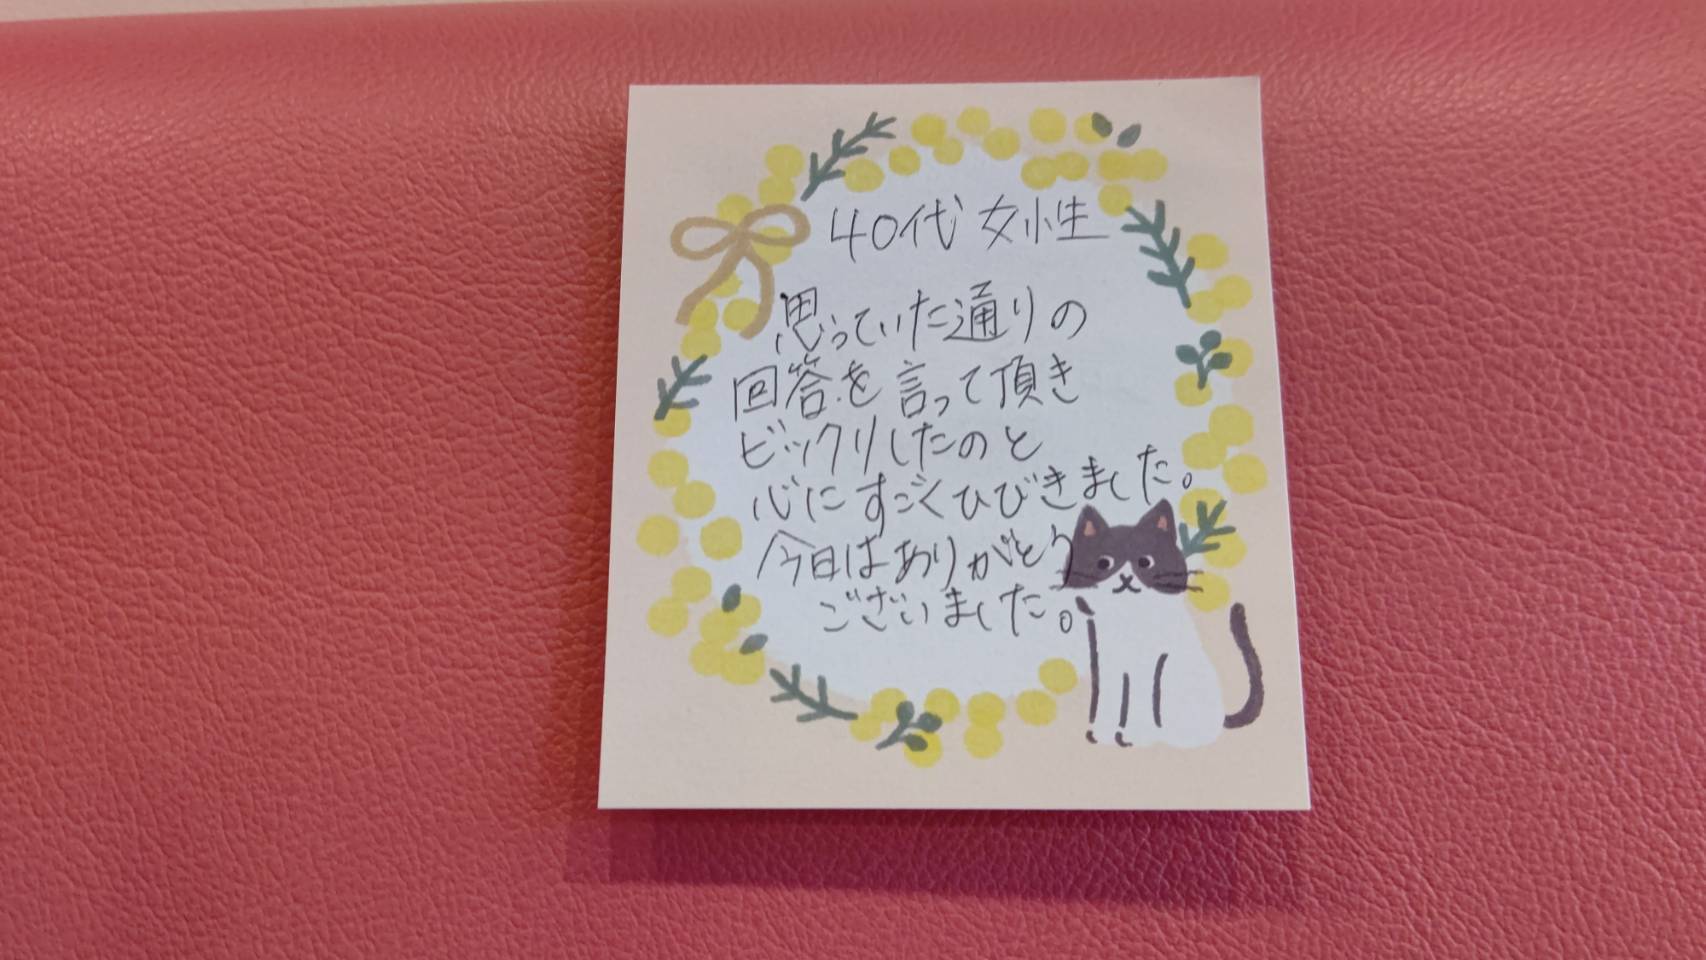 40代 女性
思っていた通りの
回答を言って頂き
ビックリしたのと
心にすごくひびきました。
今日はありがとう
ございました。